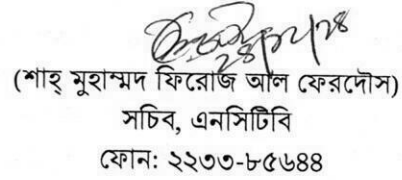 ২৪/১২/২৪
(শাহ্ মুহাম্মদ ফিরোজ আল ফেরদৌস)
সচিব, এনসিটিবি
ফোন: ২২৩৩-৮৫৬৪৪